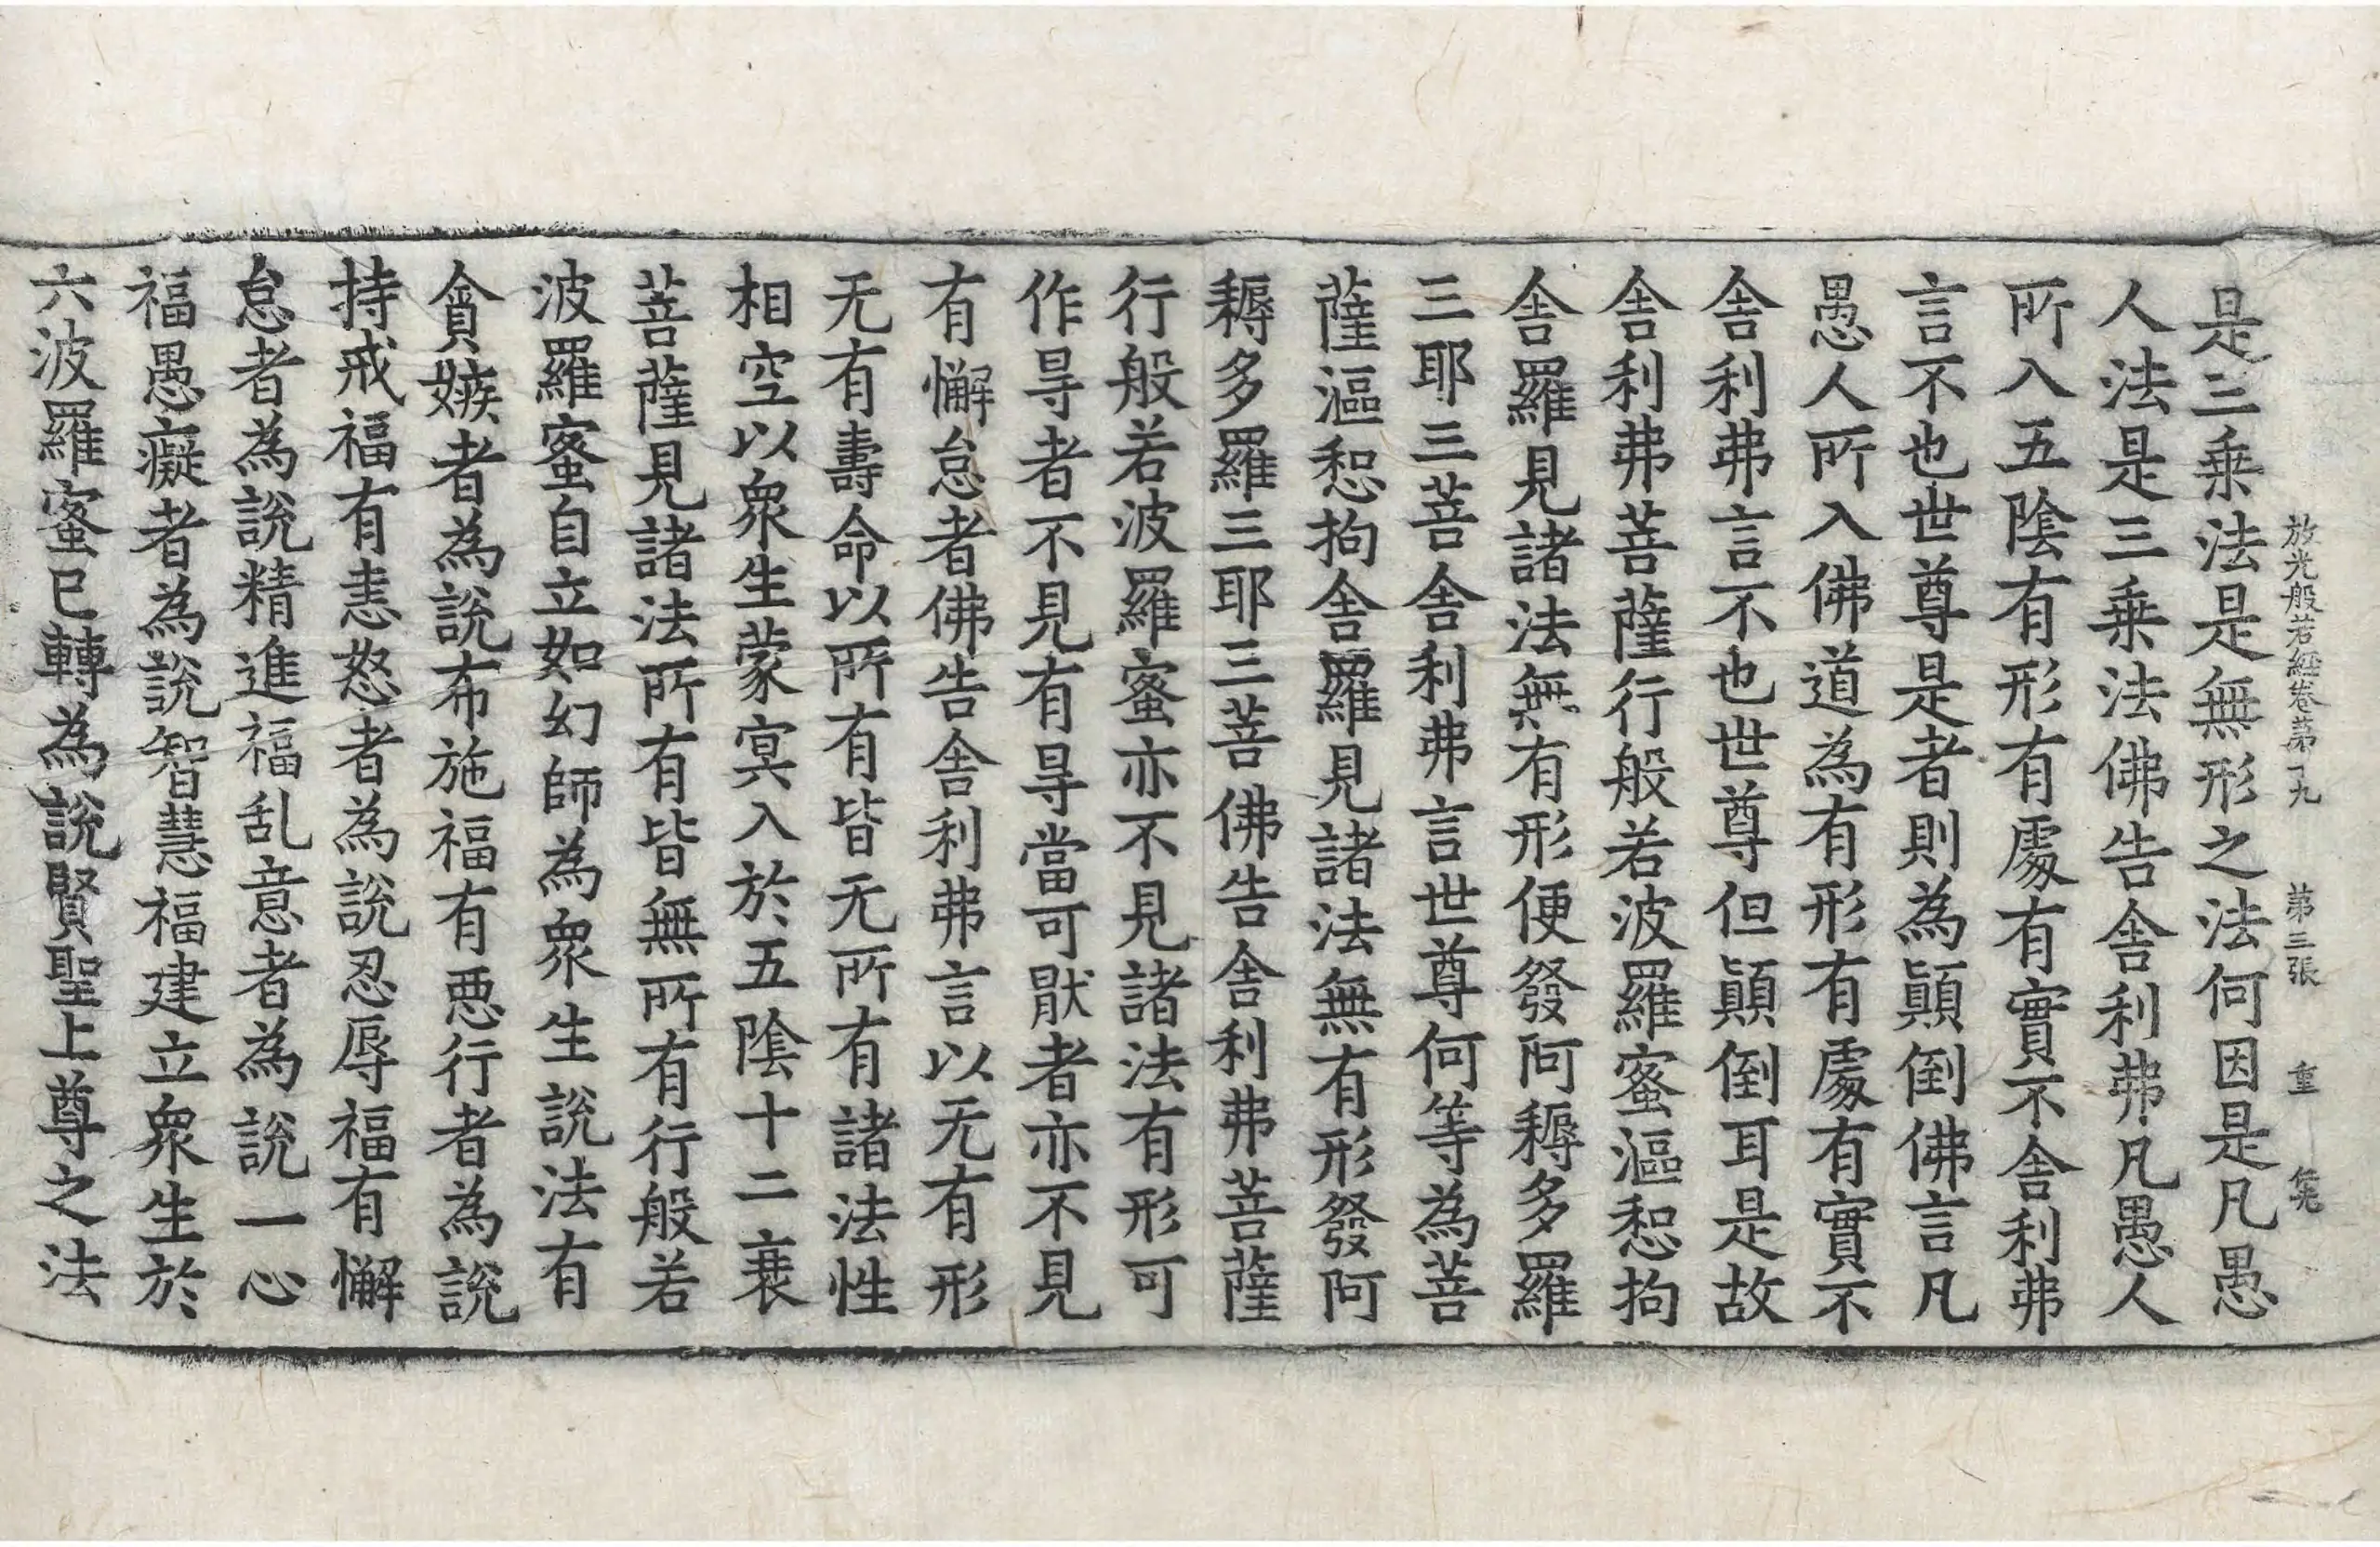 放光般若經卷第十九 第三張 重
是三乗法是無形之法何因是凡愚
人法是三乗法佛告舍利弗凡愚人
所入五陰有形有處有實不舍利弗
言不也世尊是者則為顛倒佛言凡
愚人所入佛道為有形有處有實不
舍利弗言不也世尊但顛倒耳是故
舍利弗菩薩行般若波羅蜜漚惒拘
舍羅見諸法無有形便發阿耨多羅
三耶三菩舍利弗言世尊何等為菩
薩漚惒拘舍羅見諸法無有形發阿
耨多羅三耶三菩佛告舍利弗菩薩
行般若波羅蜜亦不見諸法有形可
作㝵者不見有㝵當可猒者亦不見
有懈怠者佛告舍利弗言以无有形
无有壽命以所有皆无所有諸法性
相空以衆生蒙冥入於五陰十二衰
菩薩見諸法所有皆無所有行般若
波羅蜜自立如幻師為衆生說法有
貪嫉者為說布施福有惡行者為說
持戒福有恚怒者為說忍辱福有懈
怠者為說精進福乱意者為說一心
福愚癡者為說智慧福建立衆生於
六波羅蜜已轉為說賢聖上尊之法